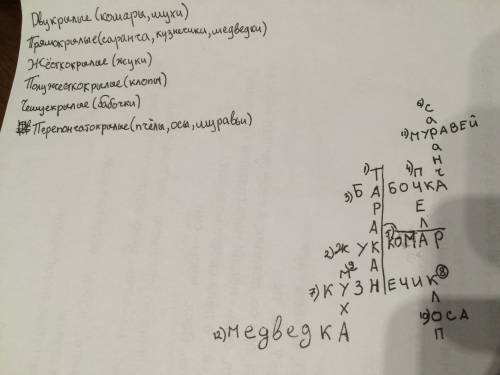 Двукрылые (комары, мухи)
Прямокрылые (саранча, кузнечики, медведки)
Жёсткокрылые (жуки)
Полужесткокрылые (клопы)
Чешуекрылые (бабочки)
Перепончатокрылые (пчёлы, осы, муравьи)
6) С
А
11) МУРАВЕЙ
А
Н
1) Т 4) П Ч
3) БАБОЧКА
Р Е
А Л
2) ЖУК 5) КОМАР
9 М А
7) КУЗНЕЧИК 8
Х Л
10) ОСА
12) медведкА П